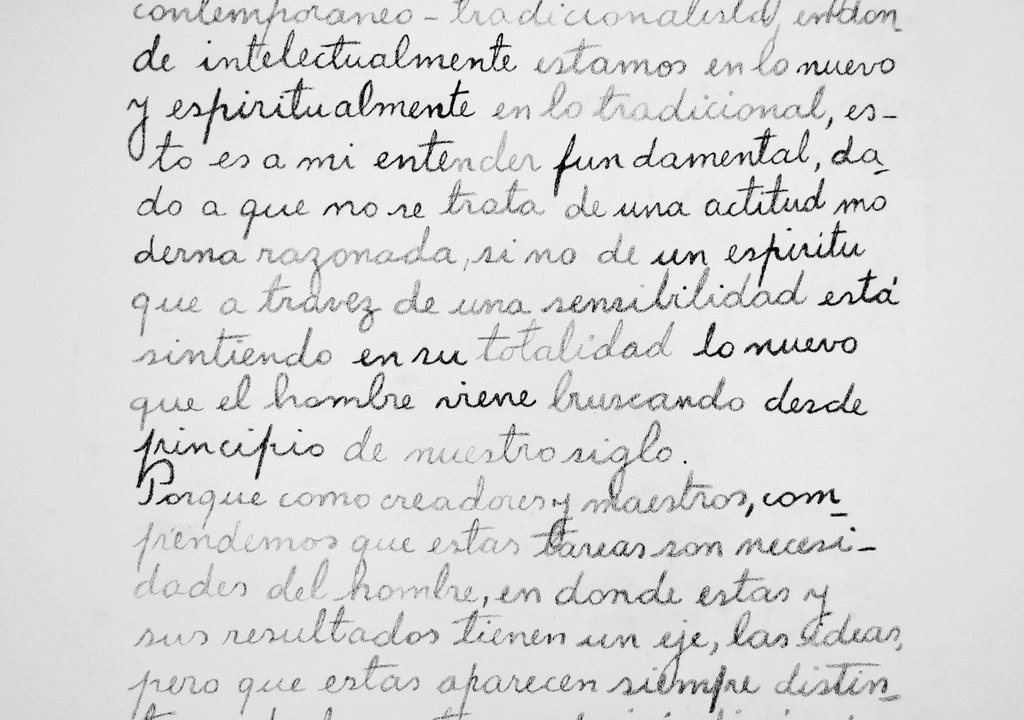 contemporaneo-tradicionalista y en don
de intelectualmente estamos en lo nuevo
y espiritualmente en lo tradicional, es-
to es a mi entender fundamental, da_
do a que no se trata de una actitud mo
derna razonada, si no de un espiritu
que a travez de una sensibilidad está
sintiendo en su totalidad lo nuevo
que el hombre viene bruscando desde
principio de nuestro siglo.
Porque como creadores y maestros, com_
prendemos que estas tareas son necesi-
dades del hombre, en donde estas y
sus resultados tienen un eje, las ideas,
pero que estas aparecen siempre distin_